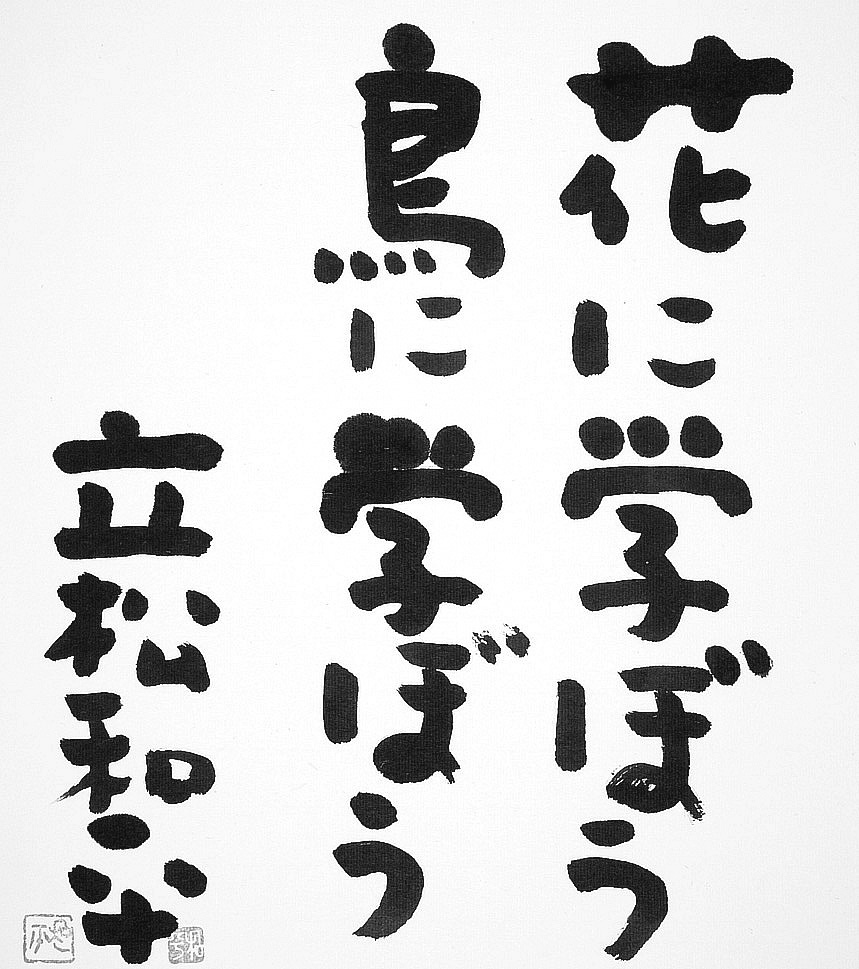 花に学ぼう
鳥に学ぼう
立松和平